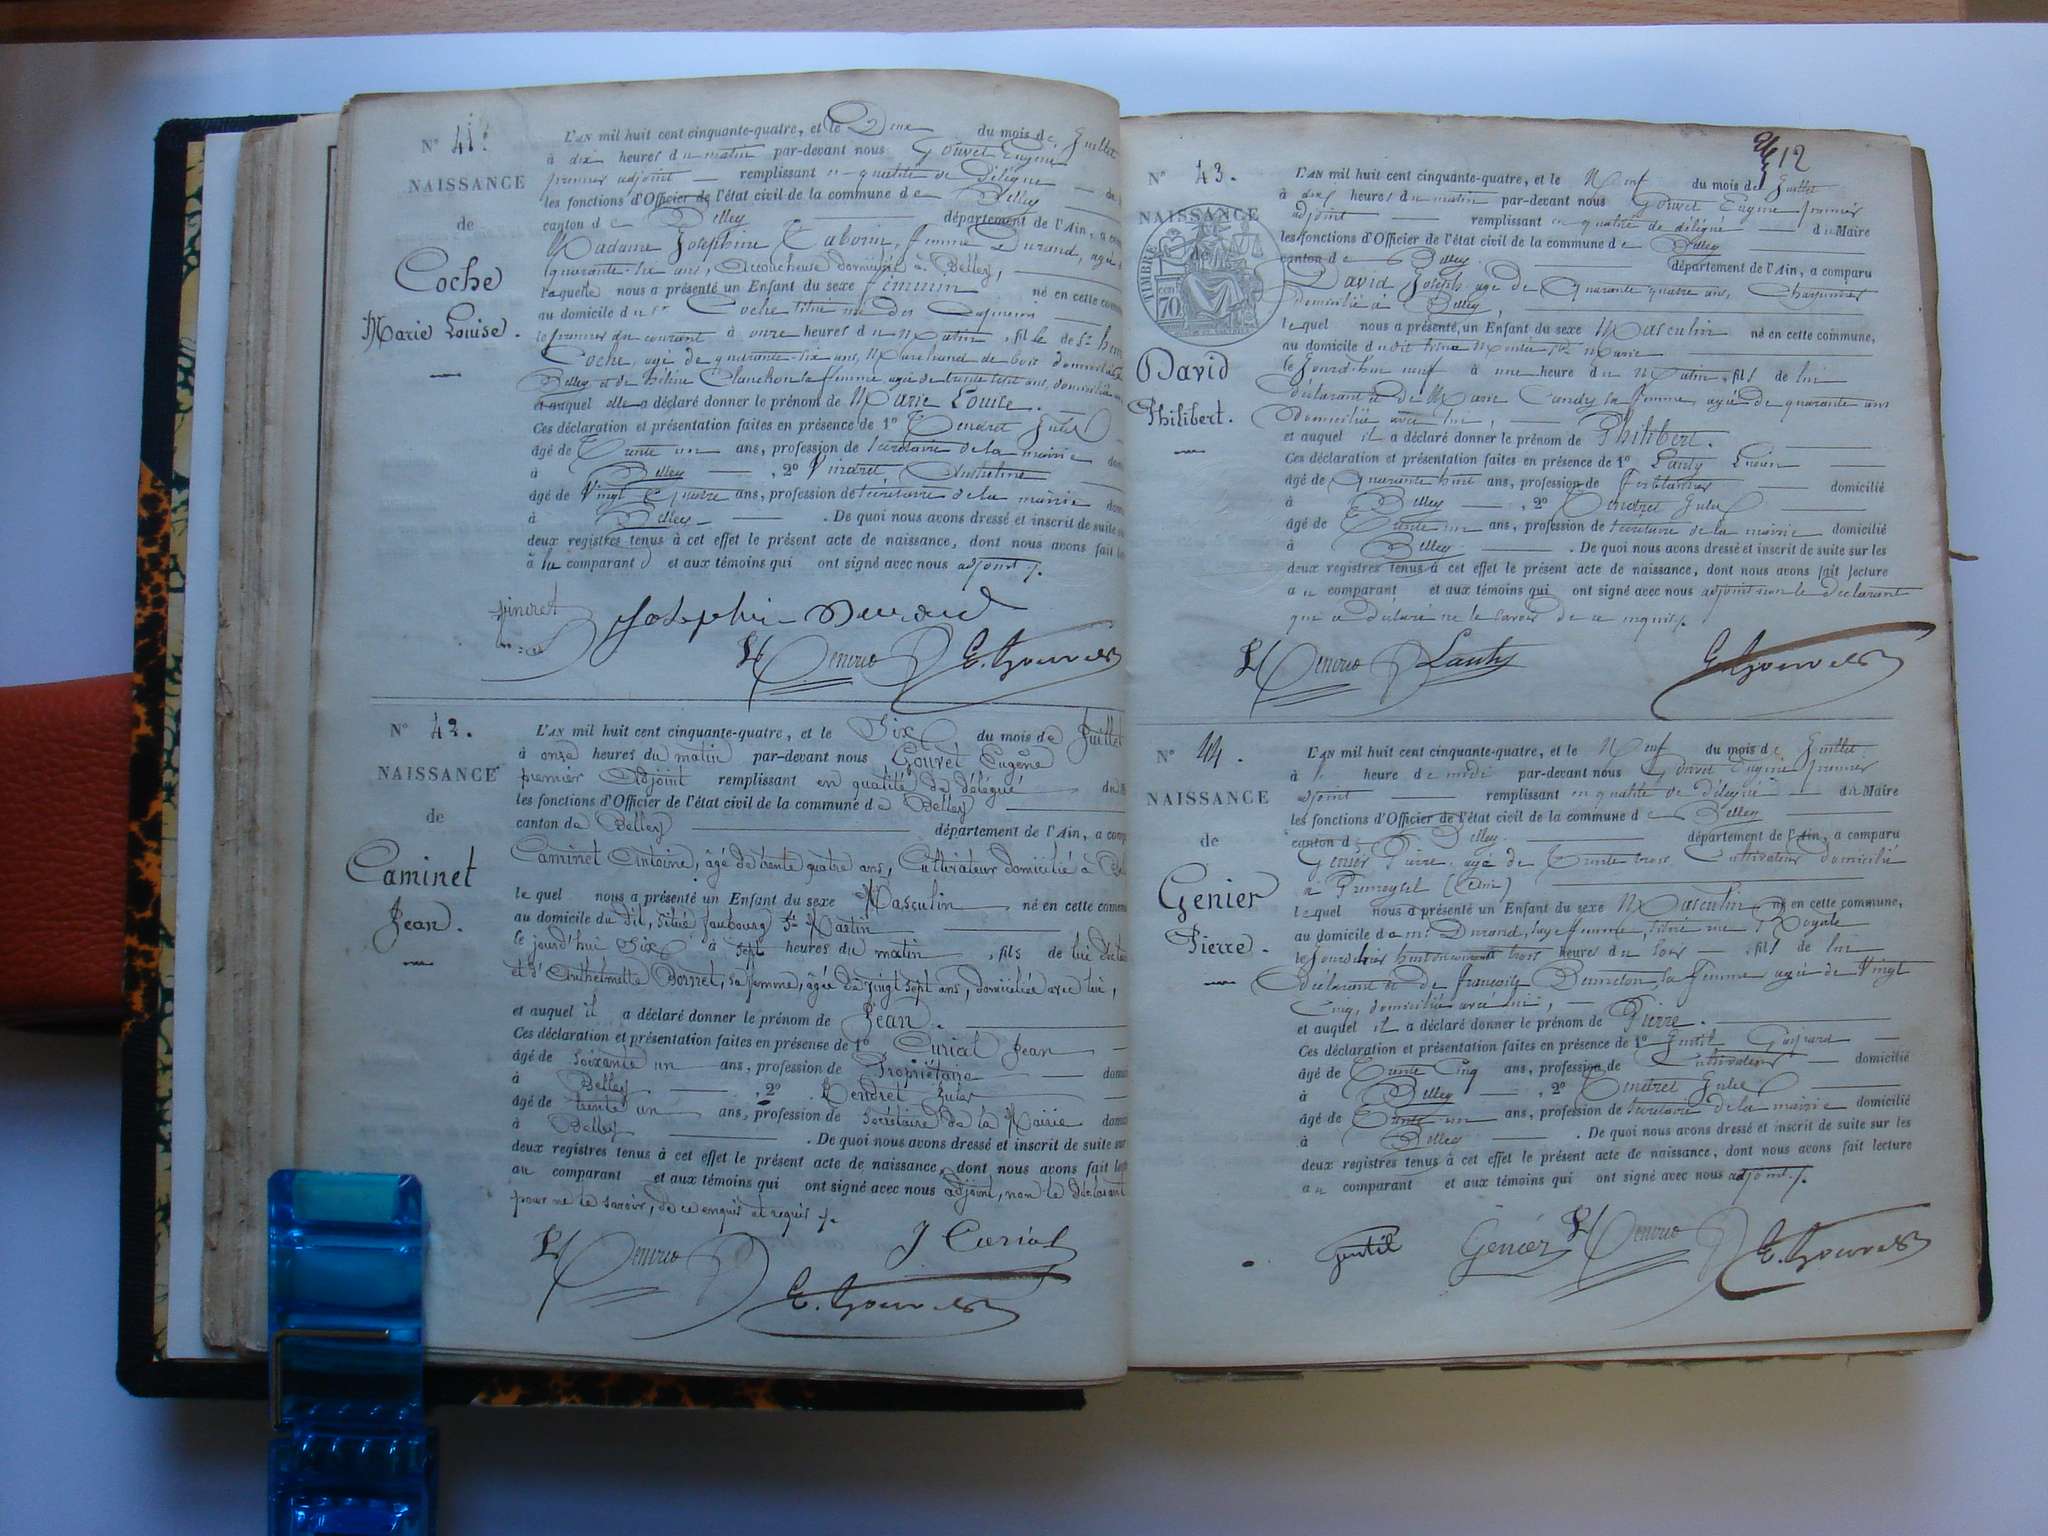 N° 41.
NAISSANCE
de
Coche
Marie Louise.
L'AN mil huit cent cinquante-quatre, et le Deux du mois de Juillet
à dix heures du matin par-devant nous Gouvet Eugène
premier adjoint remplissant en qualité de délégué
les fonctions d'Officier de l'état civil de la commune de Belley
canton de Belley département de l'Ain, a comp
Madame Josephine Taborin, femme Durand, agée
quarante-six ans, Accoucheuse domiciliée à Belley,
laquelle nous a présenté un Enfant du sexe féminin né en cette comm
au domicile du Sr Coche situé rue des
le premier du courant à onze heures du matin, fille de Sr
Coche, agé de quarante-six ans, Marchand de bois domicilié
Belley et de Hélène Planchon sa femme, agée de trente sept ans, domiciliée
à auquel elle a déclaré donner le prénom de Marie Louise.
Ces déclaration et présentation faites en présence de 1° Tendret Jules
âgé de Trente un ans, profession de Secrétaire de la mairie dom
à Belley, 2° Pindret Anthelme
âgé de Vingt quatre ans, profession de Secrétaire de la mairie dom
à Belley. De quoi nous avons dressé et inscrit de suite
deux registres tenus à cet effet le présent acte de naissance, dont nous avons fait
à la comparant et aux témoins qui ont signé avec nous adjoint /.
Josephi Durand
E. Gouvet
N° 42.
NAISSANCE
de
Caminet
Jean.
L'AN mil huit cent cinquante-quatre, et le Six du mois de Juillet
à onze heures du matin par-devant nous Gouvet Eugène
premier Adjoint remplissant en qualité de délégué du
les fonctions d'Officier de l'état civil de la commune de Belley
canton de Belley département de l'Ain, a comp
Caminet Antoine, âgé de trente quatre ans, Cultivateur domicilié à Be
le quel nous a présenté un Enfant du sexe Masculin né en cette commu
au domicile du dit, situé faubourg St Martin
le jourd'hui Six à sept heures du matin, fils de lui
et d'Anthelmette Bonnet, sa femme, âgée de vingt sept ans, domiciliée avec lui,
et auquel il a déclaré donner le prénom de Jean.
Ces déclaration et présentation faites en présense de 1° Curial Jean
âgé de soixante un ans, profession de Propriétaire domi
à Belley, 2° Tendret Jules
âgé de trente un ans, profession de Secrétaire de la Mairie domi
à Belley. De quoi nous avons dressé et inscrit de suite sur
deux registres tenus à cet effet le présent acte de naissance, dont nous avons fait
au comparant et aux témoins qui ont signé avec nous adjoint, non le déclarant
pour ne le savoir, de ce enquis et requis /.
J Curial
E. Gouvet
12
N° 43.
NAISSANCE
de
TIMBRE
70
David
Philibert.
L'AN mil huit cent cinquante-quatre, et le Neuf du mois de Juillet
à dix heures du matin par-devant nous Gouvet Eugène premier
adjoint remplissant en qualité de délégué du Maire
les fonctions d'Officier de l'état civil de la commune de Belley
canton de Belley département de l'Ain, a comparu
David Joseph agé de quarante quatre ans, Charpentier
domicilié à Belley,
le quel nous a présenté un Enfant du sexe Masculin né en cette commune,
au domicile du dit situé Montée Ste Marie
le jourd'hui neuf à une heure du Matin, fils de lui
déclarant et de Marie Candy sa femme, agée de quarante ans
domiciliée avec lui,
et auquel il a déclaré donner le prénom de Philibert.
Ces déclaration et présentation faites en présence de 1° Lauty
âgé de quarante huit ans, profession de Ferblantier domicilié
à Belley, 2° Tendret Jules
âgé de Trente un ans, profession de Secrétaire de la mairie domicilié
à Belley. De quoi nous avons dressé et inscrit de suite sur les
deux registres tenus à cet effet le présent acte de naissance, dont nous avons fait lecture
au comparant et aux témoins qui ont signé avec nous adjoint non le déclarant
qui a déclaré ne le savoir de ce enquis /.
Lauty
E. Gouvet
N° 44.
NAISSANCE
de
Genier
Pierre.
L'AN mil huit cent cinquante-quatre, et le Neuf du mois de Juillet
à heure de midi par-devant nous Gouvet Eugène premier
adjoint remplissant en qualité de délégué du Maire
les fonctions d'Officier de l'état civil de la commune de Belley
canton de Belley département de l'Ain, a comparu
Genier Pierre, agé de Trente trois, Cultivateur domicilié
à (Ain)
le quel nous a présenté un Enfant du sexe Masculin né en cette commune,
au domicile de Me Durand, sage femme, situé rue Royale
le jour d'hier huit du courant à trois heures du soir, fils de lui
déclarant et de françoise sa femme agée de Vingt
Cinq, domiciliée avec lui,
et auquel il a déclaré donner le prénom de Pierre.
Ces déclaration et présentation faites en présence de 1° Gentil Gaspard
âgé de Trente Cinq ans, profession de Cultivateur domicilié
à Belley, 2° Tendret Jules
âgé de Trente un ans, profession de Secrétaire de la mairie domicilié
à Belley. De quoi nous avons dressé et inscrit de suite sur les
deux registres tenus à cet effet le présent acte de naissance, dont nous avons fait lecture
au comparant et aux témoins qui ont signé avec nous adjoint /.
Gentil Genier E. Gouvet